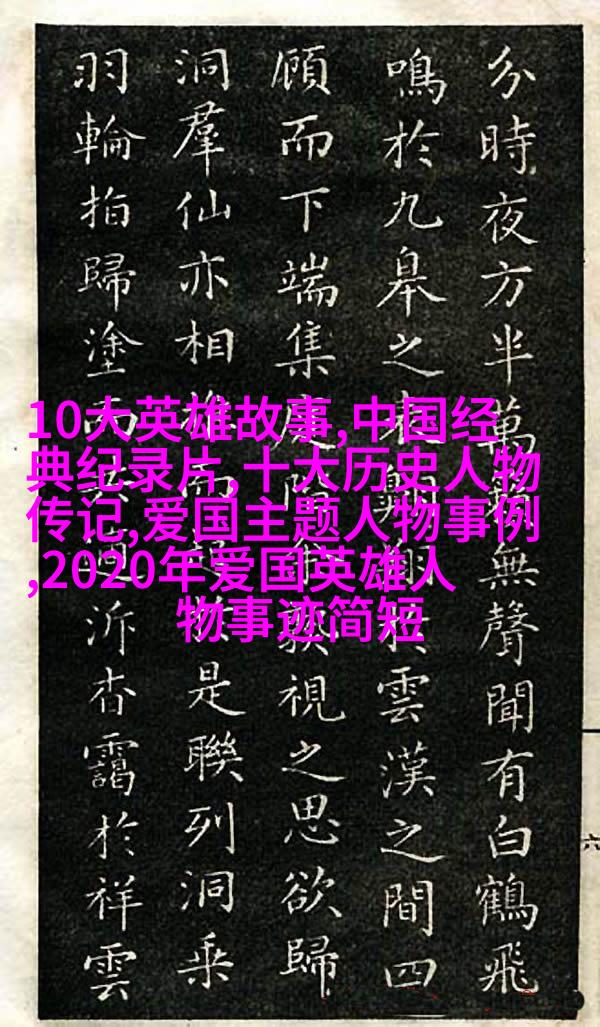 分時夜方半萬籟無聲聞有白鶴飛
鳴於九皋之表翱翔於雲漢之間四
顧而下端集庭視之思欲歸
洞羣仙亦相而是聯列洞乘
羽輪指歸塗而泝杳靄於祥雲
10大英雄故事,中国经
典纪录片,十大历史人物
传记,爱国主题人物事例
,2020年爱国英雄人
物事迹简短
六